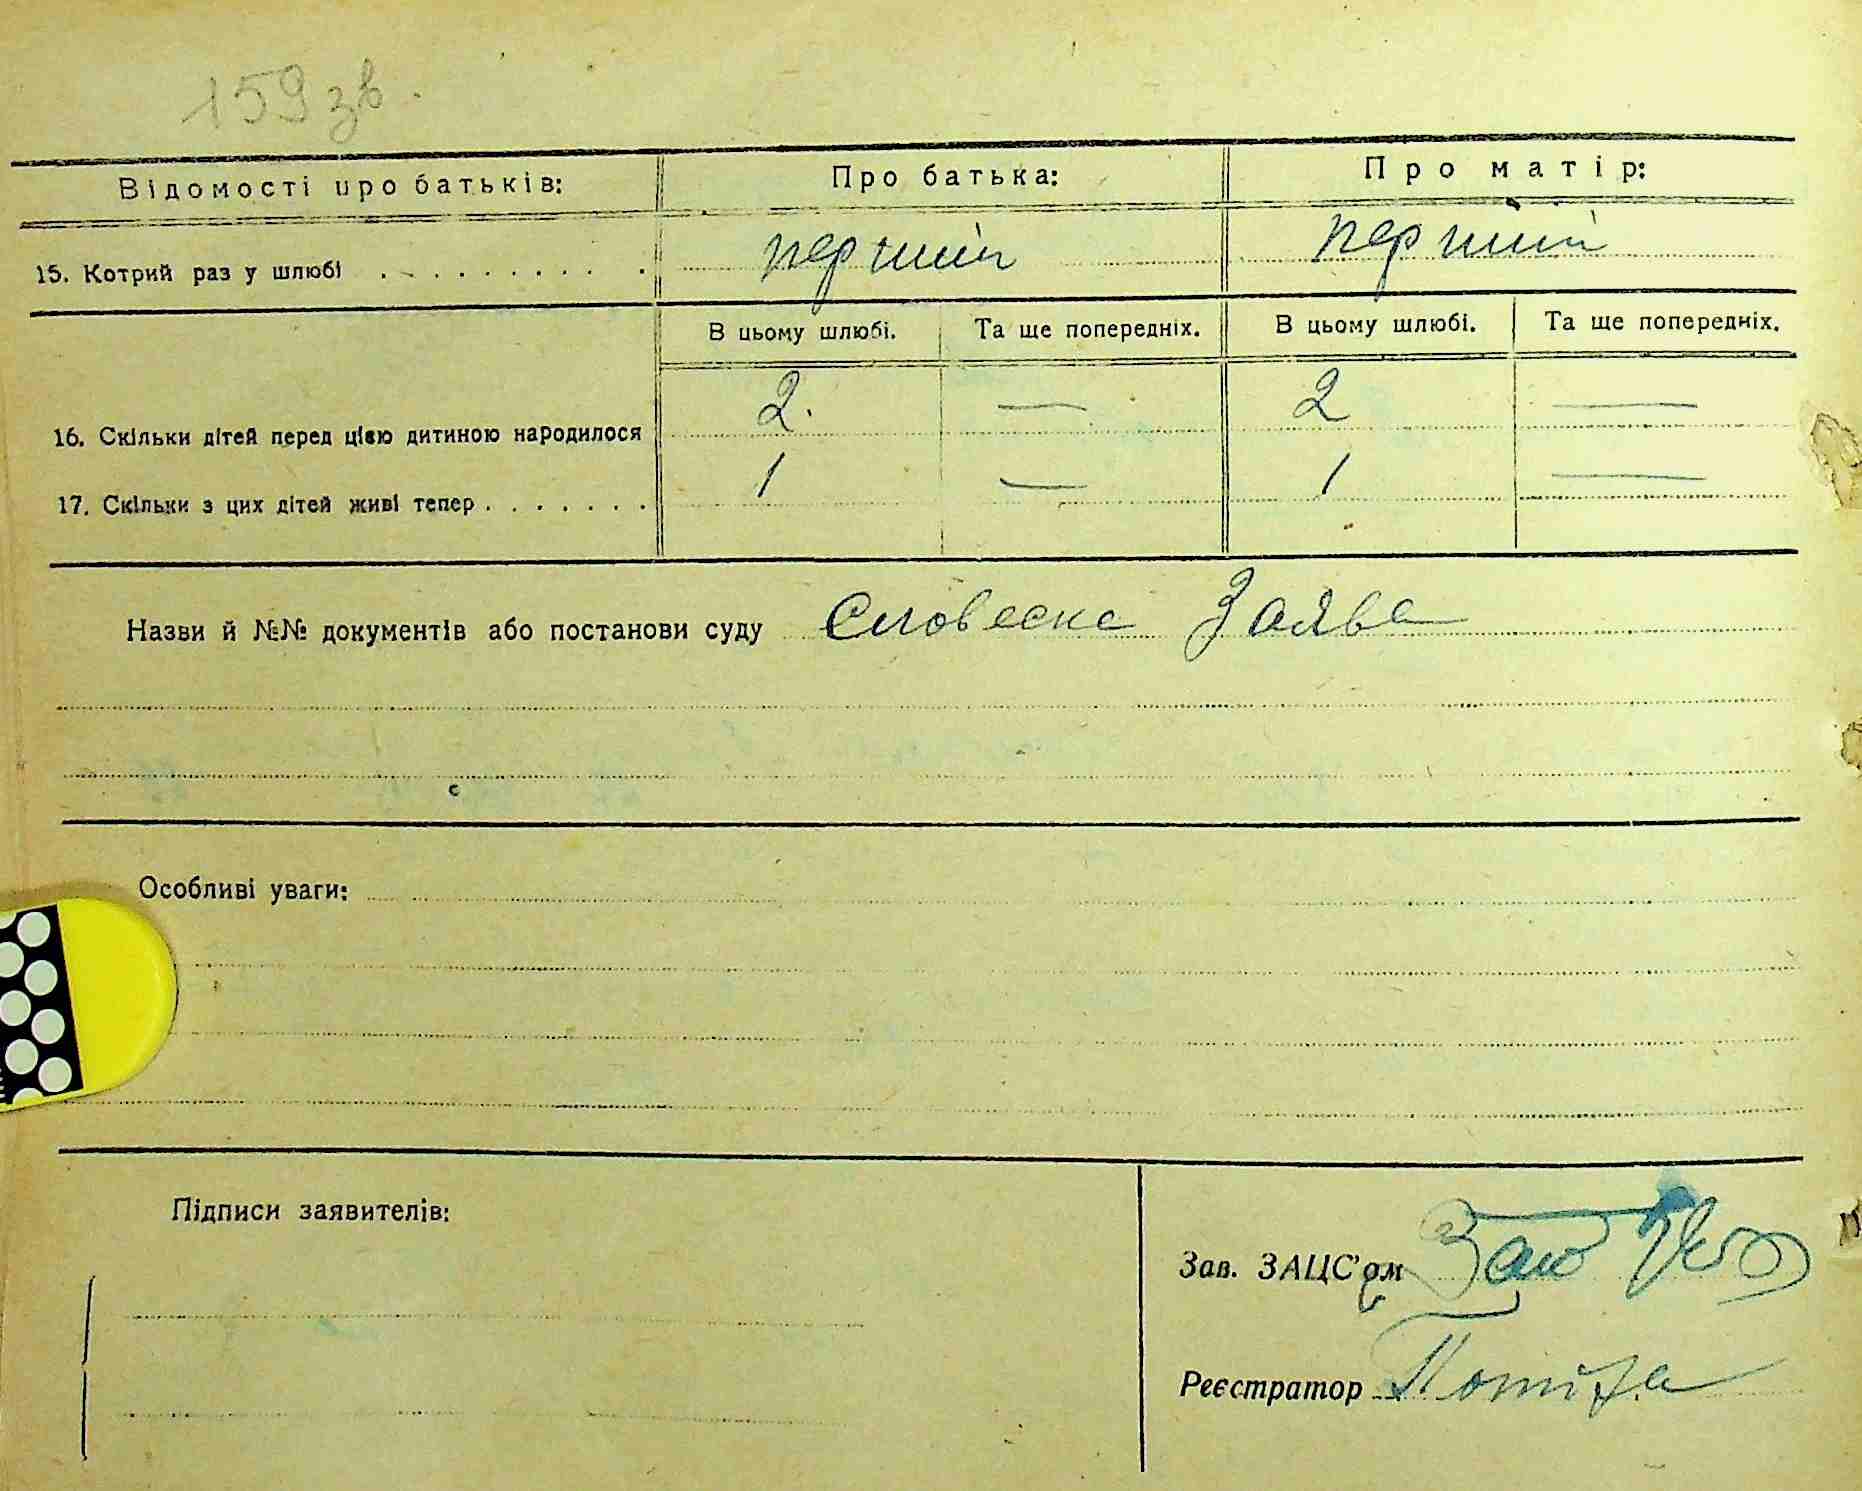 159 зв.
Відомості про батьків: Про батька: Про матір:
15. Котрий раз у шлюбі . . . . . . . . . . перший перший
В цьому шлюбі. Та ще попередніх. В цьому шлюбі. Та ще попередніх.
16. Скільки дітей перед цією дитиною народилося 2. — 2 —
17. Скільки з цих дітей живі тепер . . . . . . . 1 — 1 —
Назви й №№ документів або постанови суду Словесна Заява
Особливі уваги:
Підписи заявителів:
Зав. ЗАЦС'ом
Реєстратор